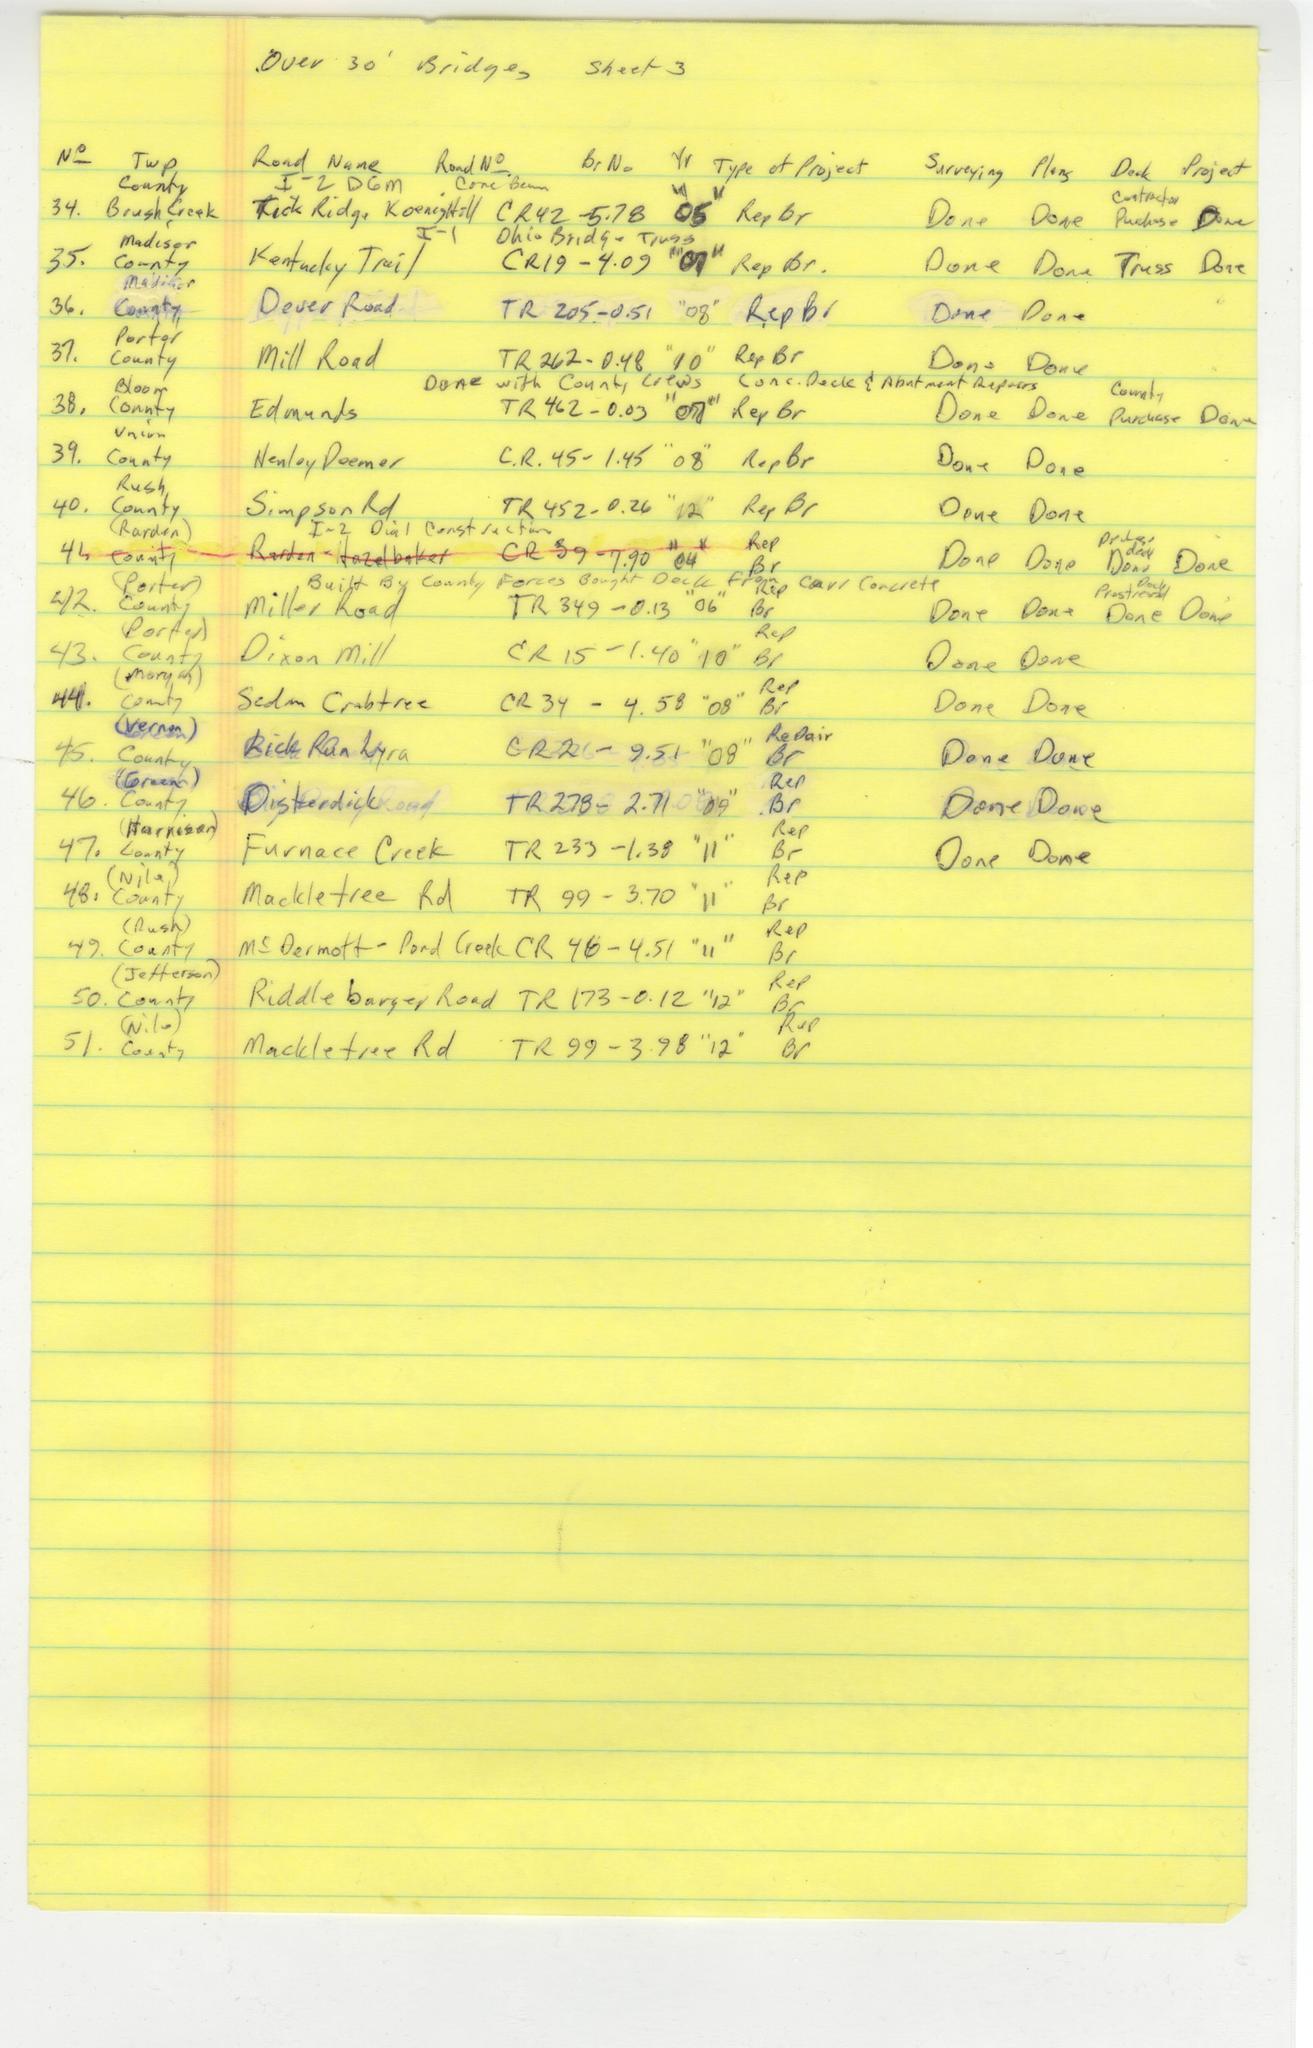 Over 30' Bridges Sheet 3
No Twp Road Name Road No. Br No. Yr Type of Project Surveying Plans Deck Project
County I-2 DGM Conc Beam Contractor
34. Brush Creek Tick Ridge Koenig Hill CR42 - 5.78 "05" Rep Br Done Done Purchase Done
Madison I-1 Ohio Bridge - Truss
35. County Kentucky Trail CR19 - 4.09 "07" Rep Br. Done Done Truss Done
Madison
36. County Dever Road TR 205 - 0.51 "08" Rep Br Done Done
Porter
37. County Mill Road TR 262 - 0.48 "10" Rep Br Done Done
Bloom Done with County Crews Conc. Deck & Abutment Repairs County
38. County Edmunds TR 462 - 0.03 "07" Rep Br Done Done Purchase Done
Union
39. County Henley Deemer C.R. 45 - 1.45 "08" Rep Br Done Done
Rush
40. County Simpson Rd TR 452 - 0.26 "12" Rep Br Done Done
(Rarden) I-2 Dial Construction Rep deck
41. County Rarden - Hazelbaker CR 39 - 7.90 "04" Br Done Done Done Done
(Porter) Built By County Forces Bought Deck From Carr Concrete Rep Deck
42. County Miller Road TR 349 - 0.13 "06" Br Done Done Done Done
(Porter) Rep
43. County Dixon Mill CR 15 - 1.40 "10" Br Done Done
(Morgan) Rep
44. County Sedan Crabtree CR 34 - 4.58 "08" Br Done Done
(Vernon) Repair
45. County Lick Run Lyra CR 26 - 9.51 "08" Br Done Done
(Green) Rep
46. County Disterdick Road TR 278 - 2.71 "09" Br Done Done
(Harrison) Rep
47. County Furnace Creek TR 233 - 1.38 "11" Br Done Done
(Nile) Rep
48. County Mackletree Rd TR 99 - 3.70 "11" Br
(Rush) Rep
49. County McDermott - Pond Creek CR 46 - 4.51 "11" Br
(Jefferson) Rep
50. County Riddlebarger Road TR 173 - 0.12 "12" Br
(Nile) Rep
51. County Mackletree Rd TR 99 - 3.98 "12" Br